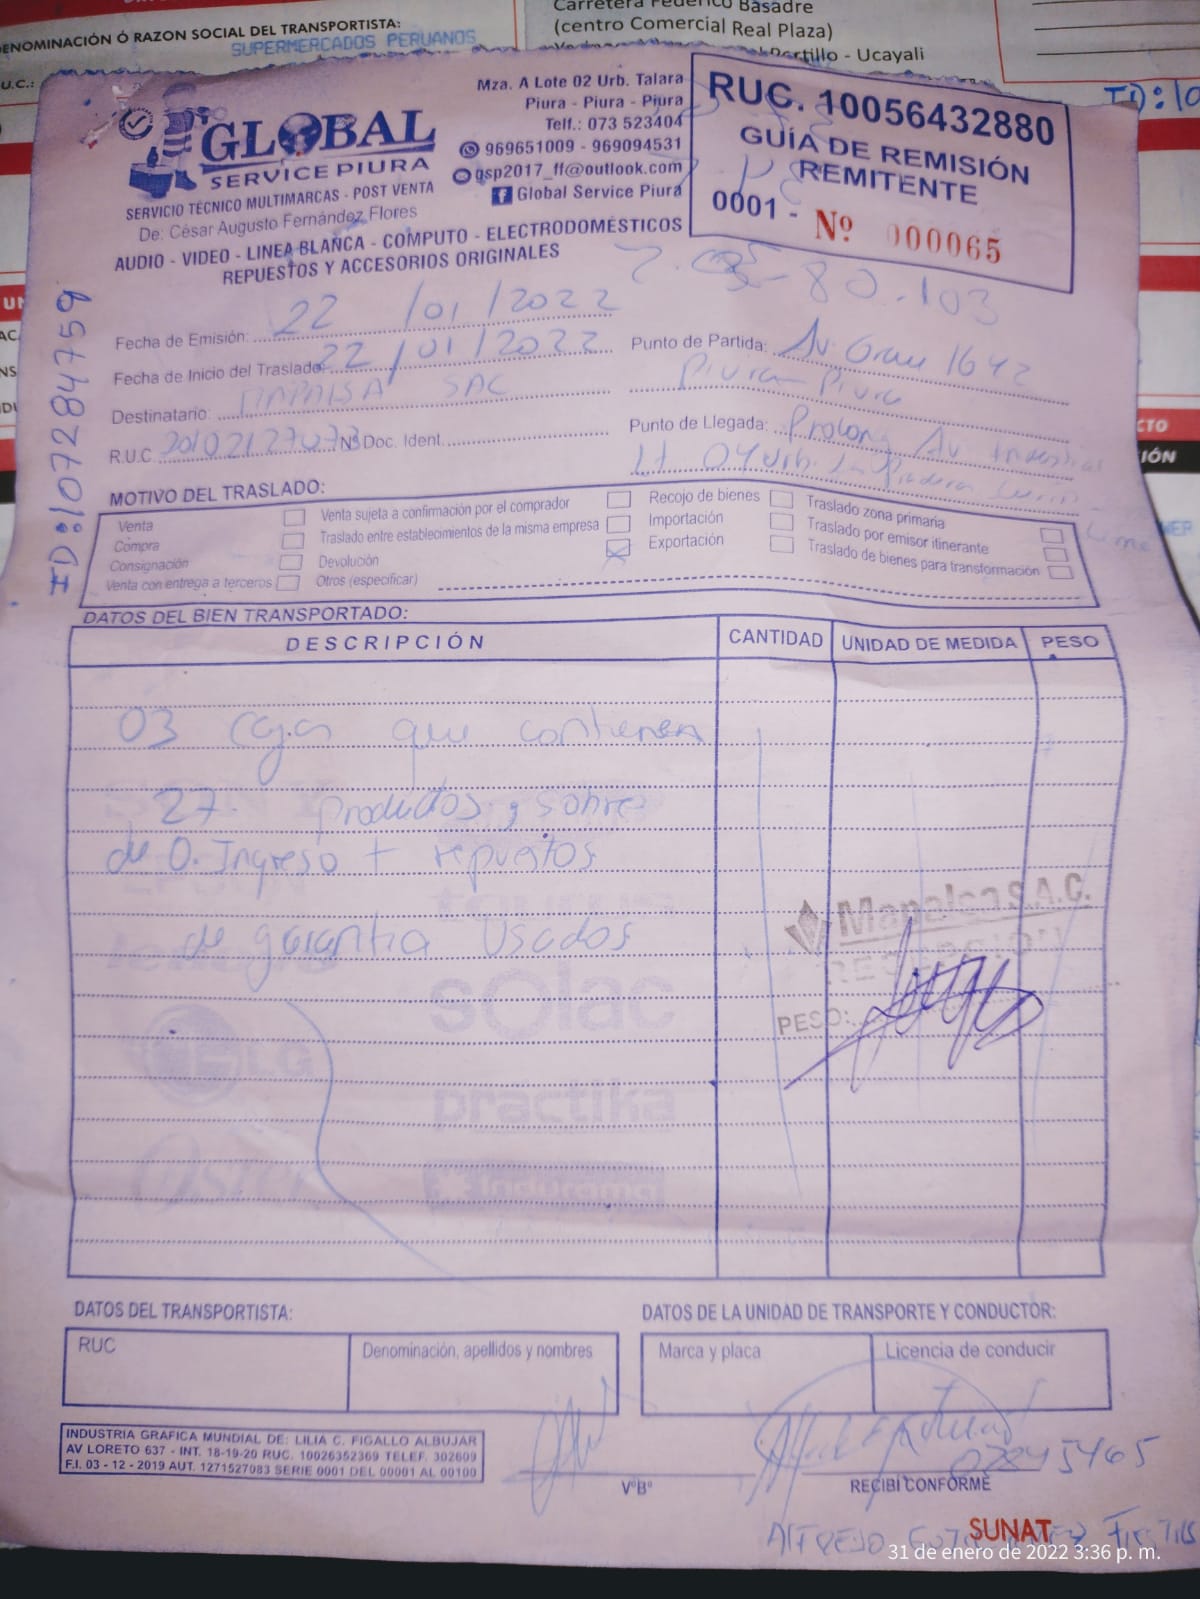 ENOMINACIÓN Ó RAZON SOCIAL DEL TRANSPORTISTA:
SUPERMERCADOS PERUANOS
U.C.:
Carretera Federico Basadre
(centro Comercial Real Plaza)
Portillo - Ucayali
ID:10
GLOBAL
SERVICE PIURA
SERVICIO TÉCNICO MULTIMARCAS - POST VENTA
De: César Augusto Fernández Flores
AUDIO - VIDEO - LINEA BLANCA - COMPUTO - ELECTRODOMÉSTICOS
REPUESTOS Y ACCESORIOS ORIGINALES
Mza. A Lote 02 Urb. Talara
Piura - Piura - Piura
Telf.: 073 523404
969651009 - 969094531
gsp2017_ff@outlook.com
Global Service Piura
RUC. 10056432880
GUÍA DE REMISIÓN
REMITENTE
0001 - Nº 000065
80.103
ID:107284759
Fecha de Emisión: 22 /01 /2022
Fecha de Inicio del Traslado: 22 /01 /2022
Destinatario: MAPALSA SAC
R.U.C. 20102127273 Nº Doc. Ident.
Punto de Partida: Av. Grau 1642
Piura - Piura
Punto de Llegada: Prolong Av. Industrial
Lt 04 Urb. La Pradera Lurin
Lima
MOTIVO DEL TRASLADO:
Venta
Compra
Consignación
Venta con entrega a terceros
Venta sujeta a confirmación por el comprador
Traslado entre establecimientos de la misma empresa
Devolución
Otros (especificar)
Recojo de bienes
Importación
Exportación
Traslado zona primaria
Traslado por emisor itinerante
Traslado de bienes para transformación
DATOS DEL BIEN TRANSPORTADO:
DESCRIPCIÓN CANTIDAD UNIDAD DE MEDIDA PESO
03 cajas que contienen
27 productos y sobre
de O. Ingreso + repuestos
de garantia usados
Mapalsa S.A.C.
RECEPCION
PESO:
solac
LG
practika
Oster
Indurama
DATOS DEL TRANSPORTISTA:
RUC
Denominación, apellidos y nombres
DATOS DE LA UNIDAD DE TRANSPORTE Y CONDUCTOR:
Marca y placa
Licencia de conducir
INDUSTRIA GRAFICA MUNDIAL DE: LILIA C. FIGALLO ALBUJAR
AV LORETO 637 - INT. 18-19-20 RUC. 10026352369 TELEF. 302609
F.I. 03 - 12 - 2019 AUT. 1271527083 SERIE 0001 DEL 00001 AL 00100
VºBº
02845465
RECIBÍ CONFORME
SUNAT
ALFREDO
31 de enero de 2022 3:36 p. m.